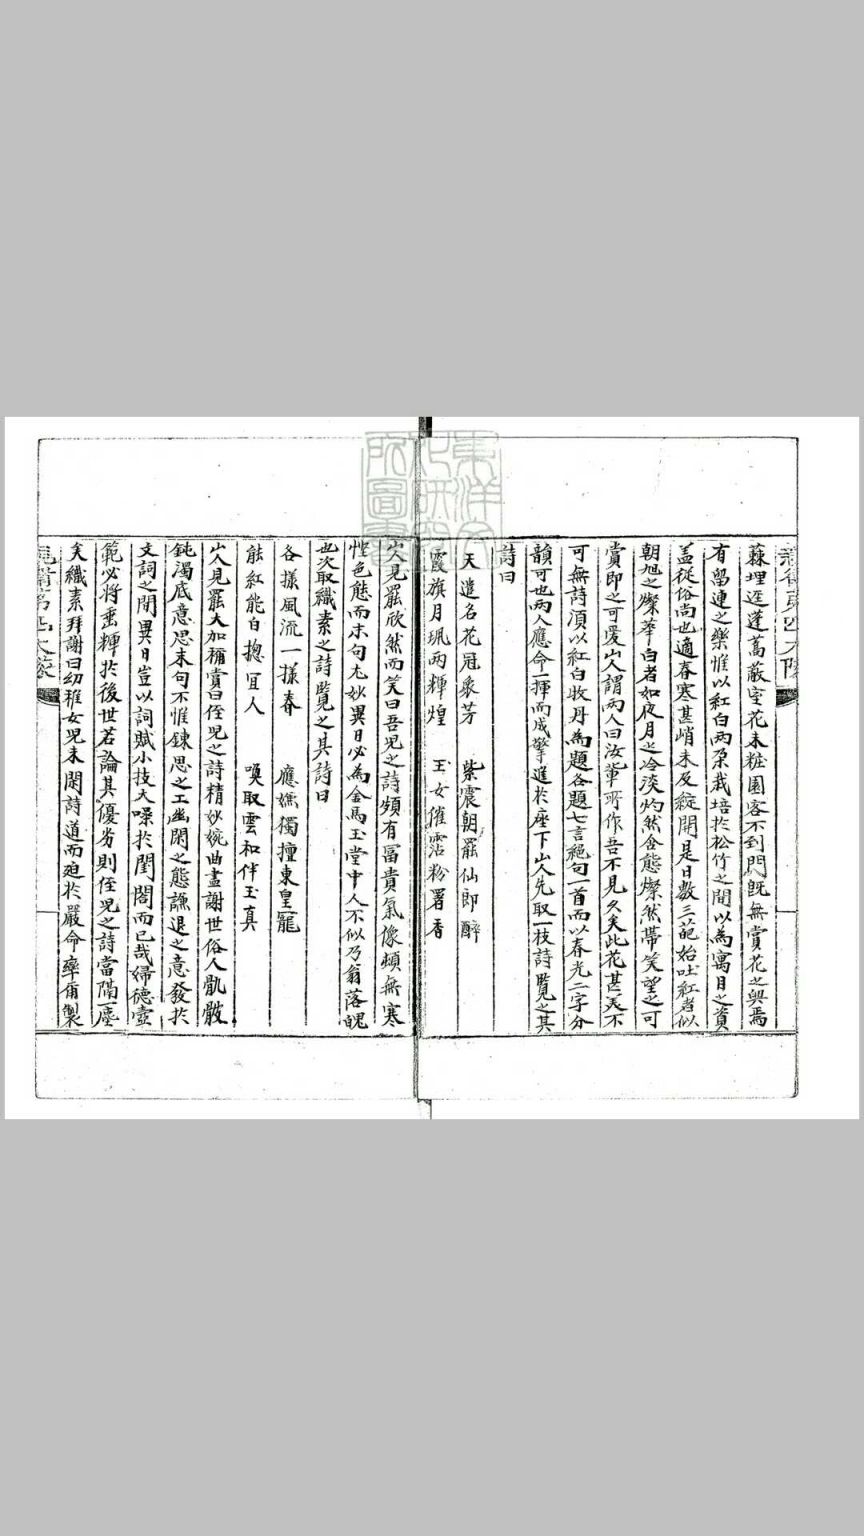 蘇埋逕蓬蒿蔽室花未粧園客不到門旣無賞花之興焉
有留連之樂惟以紅白兩朶栽培於松竹之間以為寓目之資
盖從俗尚也適春寒甚峭未及綻開是日數三葩始吐紅者似
朝旭之燦華白者如夜月之冷淡灼然含態燦然帶笑望之可
賞即之可愛山人謂兩人曰汝輩所作吾不見久矣此花甚美不
可無詩須以紅白牧丹為題各題七言絕句一首而以春光二字分
韻可也兩人應命一揮而成擎進於座下山人先取一枝詩覽之其
詩曰
天遣名花冠衆芳 紫震朝罷仙郎醉
霞旗月珮兩輝煌 玉女催霑粉署香
山人見罷欣然而笑曰吾兒之詩頻有冨貴氣像頓無寒
悭色態而末句尤妙異日必為金馬玉堂中人不似乃翁落魄
也次取纖素之詩覽之其詩曰
各樣風流一樣春 應嫌獨擅東皇寵
能紅能白摠宜人 喚取雲和伴玉真
山人見罷大加稱賞曰侄兒之詩精妙婉曲盡謝世俗人骩骳
鈍濁底意思末句不惟鍊思之工幽閑之態謙退之意發於
文詞之間異日豈以詞賦小技大噪於閨閤而已哉婦德壼
範必將垂輝於後世若論其優劣則侄兒之詩當隔一塵
矣纖素拜謝曰幼稚女兒未閑詩道而廹於嚴命率爾製